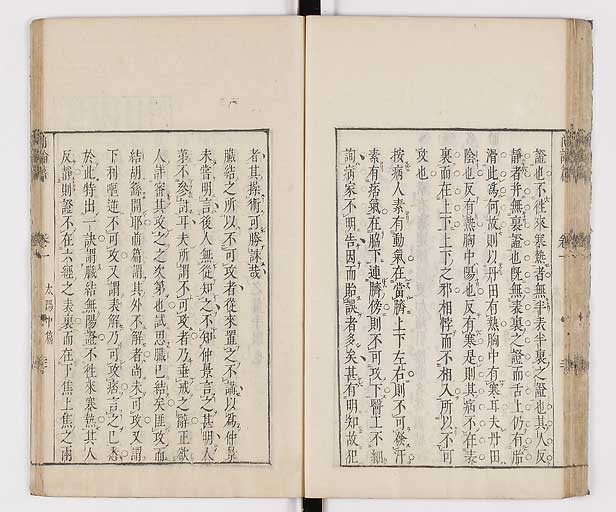 證也不往來寒熱者無半表半裏之證也其人反
靜者并無裏證也既無表裏之證而舌上仍有胎
滑此爲何故則以丹田有熱胸中有寒耳夫丹田
陰也反有熱胸中陽也反有寒是則其病不在表
裏而在上下上下之邪相悖而不相入所以不可
攻也
按病人素有動氣在當臍上下左右則不可發汗
素有痞氣在脇下連臍傍則不可攻下醫工不細
詢病家不明告因而胎誤者多矣甚有明知故犯
者其操術可勝誅哉
臟結之所以不可攻者從來置之不講以爲仲景
未嘗明言後人無從知之不知仲景言之甚明人
第不參討耳夫所謂不可攻者乃垂戒之辭正欲
人詳審其攻之之次第也試思臟已結矣匪攻而
結胡緣開耶前篇謂其外不解者尚未可攻又謂
下利嘔逆不可攻又謂表解乃可攻痞言之已悉
於此特出一訣謂臟結無陽證不往來寒熱其人
反靜則證不在六經之表裏而在下焦上焦之兩
尚論篇
卷一
太陽中篇